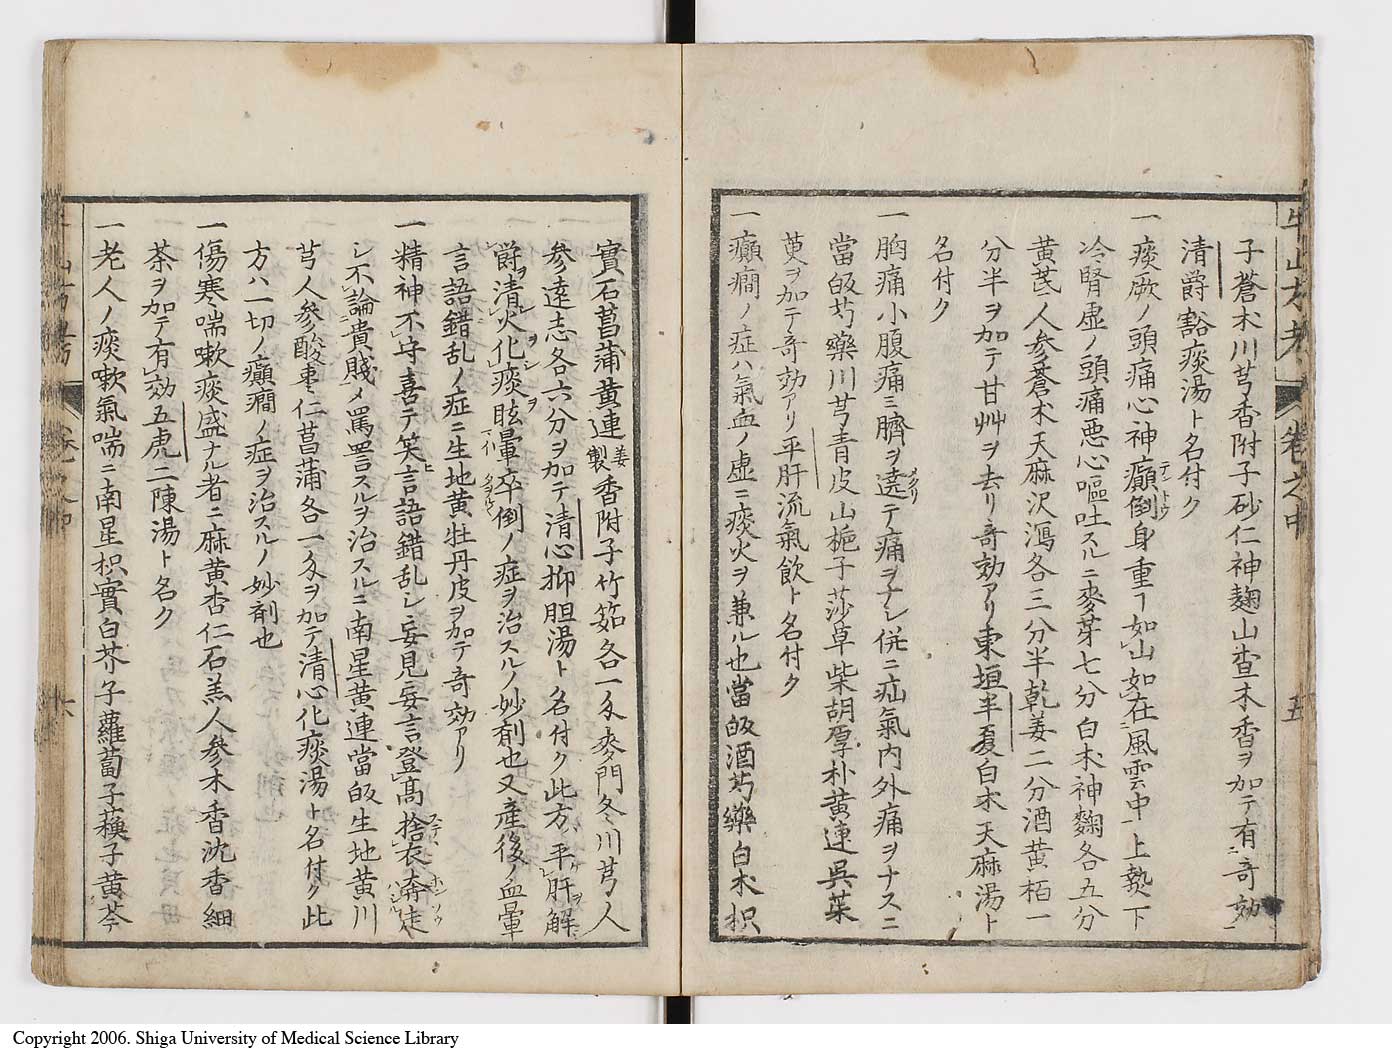 子蒼朮川芎香附子砂仁神麹山査木香ヲ加テ有奇効
清爵豁痰湯ト名付ク
一痰厥ノ頭痛心神癲倒身重フ如山如在風雲中上熱下
冷腎虚ノ頭痛悪心嘔吐スルニ麥芽七分白朮神麴各五分
黄芪人参蒼朮天麻沢瀉各三分半乾姜二分酒黄栢一
分半ヲ加テ甘艸ヲ去リ奇効アリ東垣半夏白朮天麻湯ト
名付ク
一胸痛小腹痛ミ臍ヲ遶テ痛ヲナシ併ニ疝氣内外痛ヲナスニ
當皈芍藥川芎青皮山梔子莎草柴胡厚朴黄連呉茱
萸ヲ加テ奇効アリ平肝流氣飲ト名付ク
一癲癇ノ症ハ氣血ノ虚ニ痰火ヲ兼ル也當皈酒芍藥白朮枳
實石菖蒲黄連姜製香附子竹筎各一匁麥門冬川芎人
参遠志各六分ヲ加テ清心抑胆湯ト名付ク此方ハ平肝解
爵清火化痰眩暈卒倒ノ症ヲ治スルノ妙剤也又産後ノ血暈
言語錯乱ノ症ニ生地黄牡丹皮ヲ加テ奇効アリ
一精神不守喜テ笑言語錯乱シ妄見妄言登髙捨衣奔徒
シ不論貴賎メ罵詈スルヲ治スルニ南星黄連當皈生地黄川
芎人参酸棗仁菖蒲各一匁ヲ加テ清心化痰湯ト名付ク此
方ハ一切ノ癲癇ノ症ヲ治スルノ妙剤也
一傷寒喘嗽痰盛ナル者ニ麻黄杏仁石羔人参木香沈香細
茶ヲ加テ有効五虎二陳湯ト名ク
一老人ノ痰嗽氣喘ニ南星枳實白芥子蘿蔔子蘓子黄芩